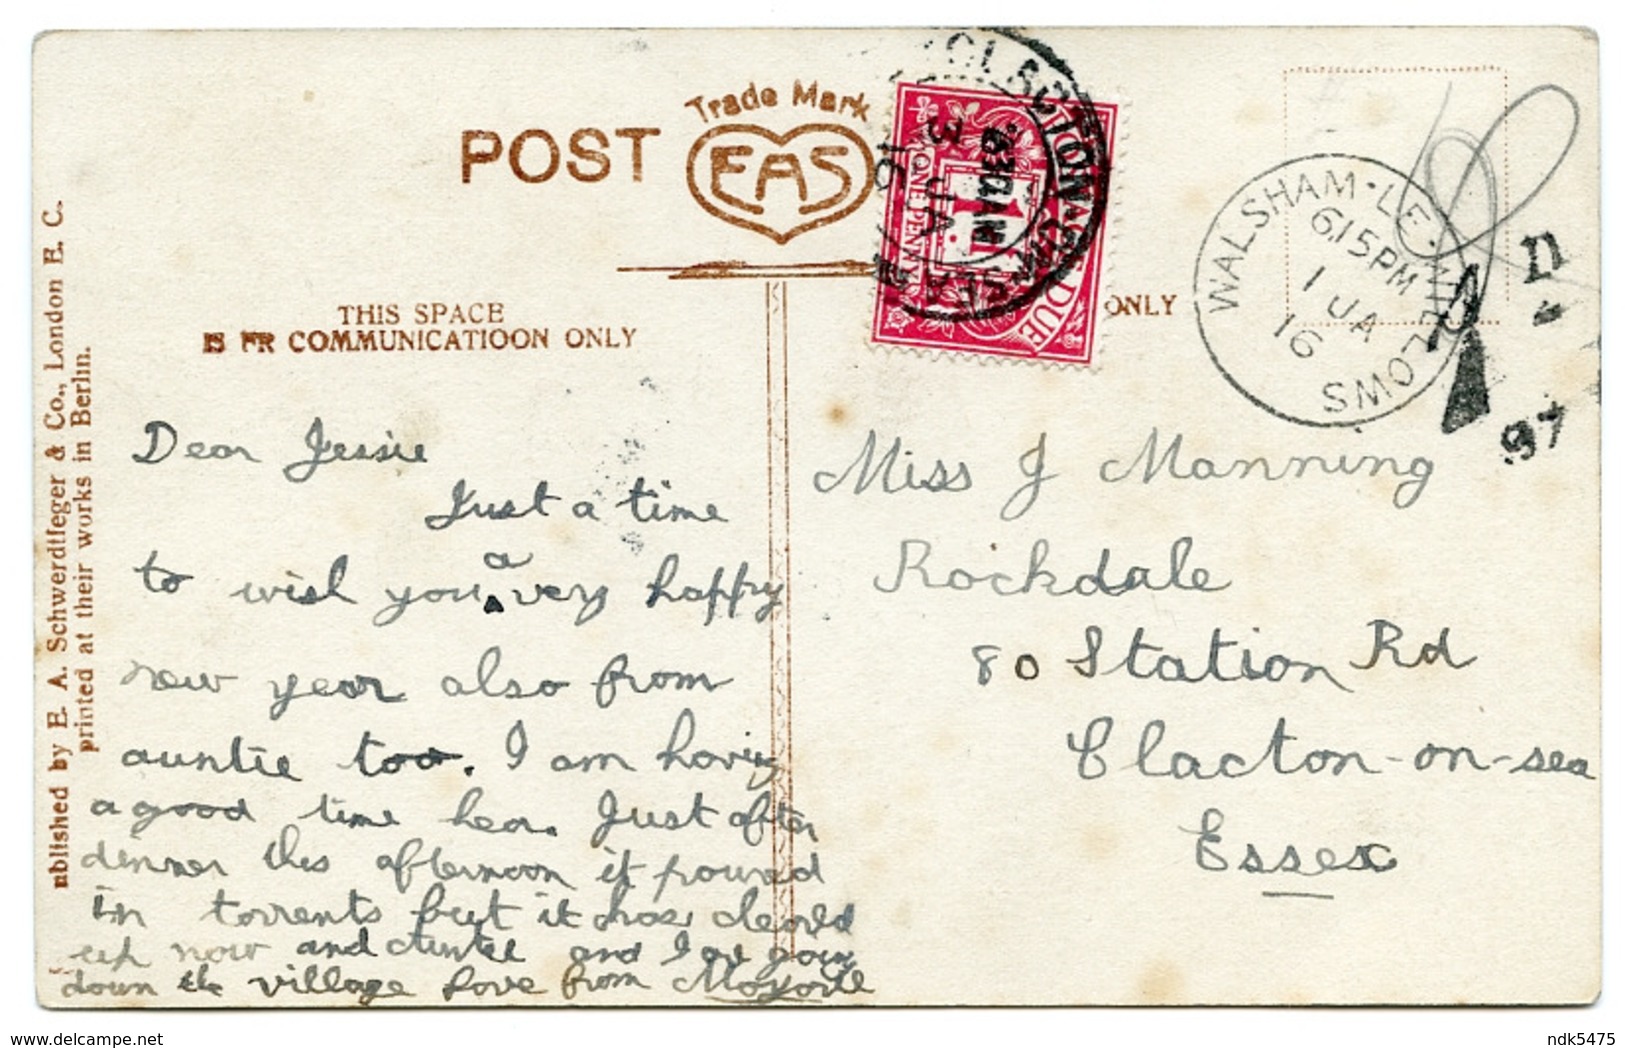 Trade Mark
POST EAS
ONLY
THIS SPACE
IS FR COMMUNICATIOON ONLY
ublished by E. A. Schwerdtfeger & Co., London E. C.
printed at their works in Berlin.
DUE
ONE PENNY
CLACTON-ON-SEA
630AM
3 JA
16
WALSHAM-LE-WILLOWS
615PM
1 JA
16
D
97
Dear Jessie
Just a time
to wish you a very happy
new year also from
auntie too. I am having
a good time hear. Just after
dinner this afternoon it poured
in torrents but it has cleared
up now and Auntie and I are going
down the village love from
Miss J Manning
Rockdale
80 Station Rd
Clacton-on-sea
Essex
delcampe.net
ndk5475